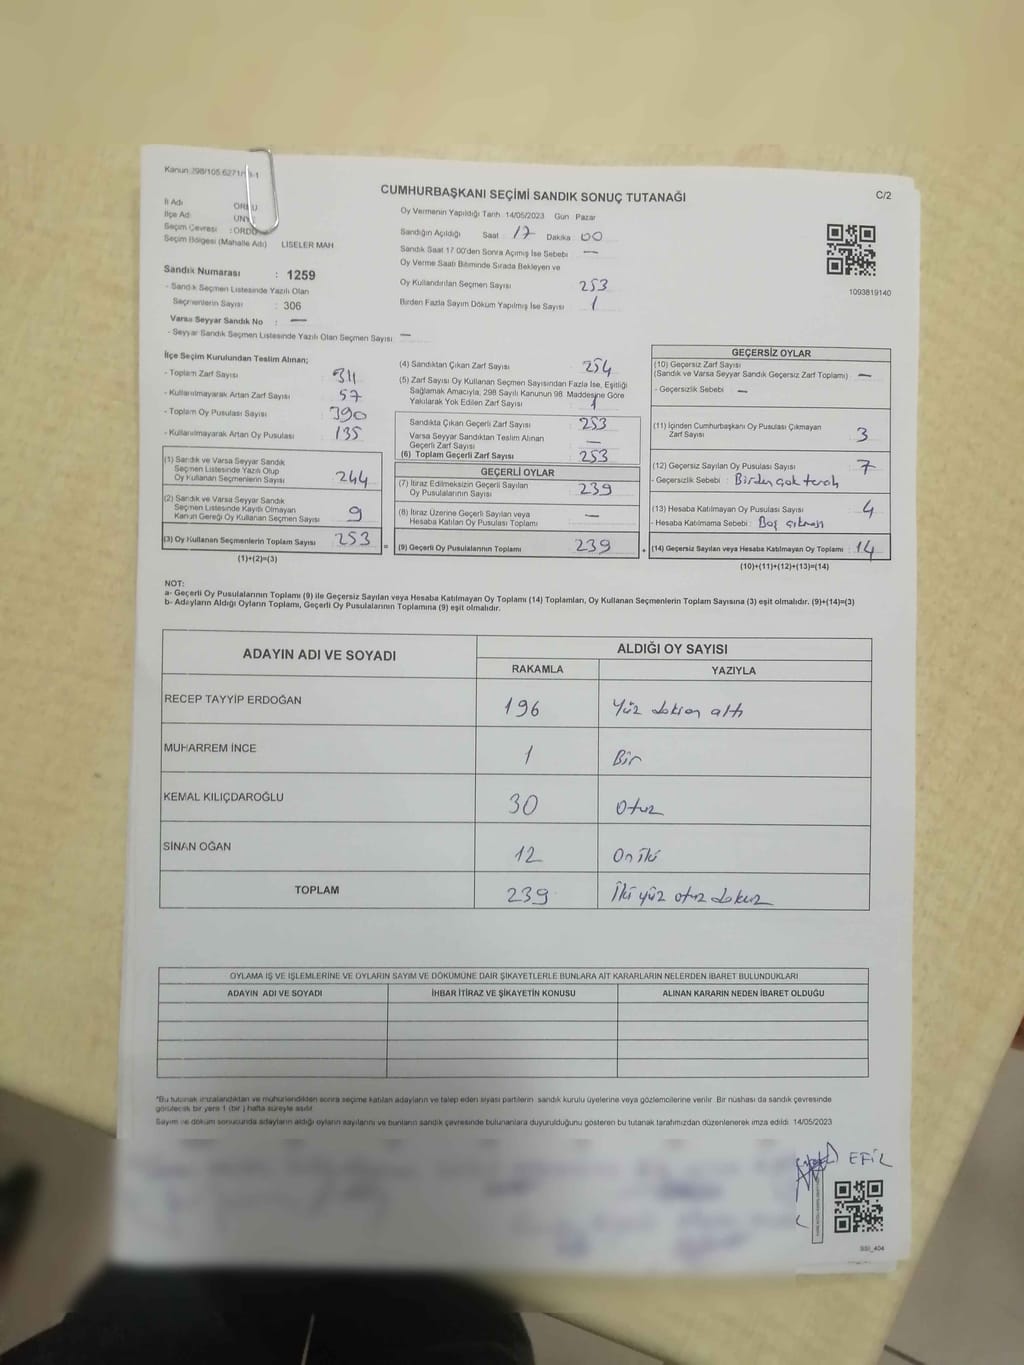 Kanun:298/105.6271/
C/2
CUMHURBAŞKANI SEÇİMİ SANDIK SONUÇ TUTANAĞI
İl Adı
İlçe Adı
Seçim Çevresi : ORDU
Seçim Bölgesi (Mahalle Adı) LİSELER MAH
Oy Vermenin Yapıldığı Tarih 14/05/2023 Gün Pazar
Sandığın Açıldığı Saat 17 Dakika 00
Sandık Saat 17.00'den Sonra Açımış İse Sebebi —
Oy Verme Saati Bitiminde Sırada Bekleyen ve
Oy Kullandırılan Seçmen Sayısı 253
Birden Fazla Sayım Döküm Yapılmış İse Sayısı 1
1093819140
Sandık Numarası : 1259
- Sandık Seçmen Listesinde Yazılı Olan
Seçmenlerin Sayısı : 306
Varsa Seyyar Sandık No : —
- Seyyar Sandık Seçmen Listesinde Yazılı Olan Seçmen Sayısı —
İlçe Seçim Kurulundan Teslim Alınan;
- Toplam Zarf Sayısı 311
- Kullanılmayarak Artan Zarf Sayısı 57
- Toplam Oy Pusulası Sayısı 390
- Kullanılmayarak Artan Oy Pusulası 135
(1) Sandık ve Varsa Seyyar Sandık
Seçmen Listesinde Yazılı Olup
Oy Kullanan Seçmenlerin Sayısı 244
(2) Sandık ve Varsa Seyyar Sandık
Seçmen Listesinde Kayıtlı Olmayan
Kanun Gereği Oy Kullanan Seçmen Sayısı 9
(3) Oy Kullanan Seçmenlerin Toplam Sayısı 253
(1)+(2)=(3)
(4) Sandıktan Çıkan Zarf Sayısı 254
(5) Zarf Sayısı Oy Kullanan Seçmen Sayısından Fazla İse, Eşitliği
Sağlamak Amacıyla, 298 Sayılı Kanunun 98. Maddesine Göre
Yakılarak Yok Edilen Zarf Sayısı 1
Sandıkta Çıkan Geçerli Zarf Sayısı 253
Varsa Seyyar Sandıktan Teslim Alınan
Geçerli Zarf Sayısı —
(6) Toplam Geçerli Zarf Sayısı 253
GEÇERLİ OYLAR
(7) İtiraz Edilmeksizin Geçerli Sayılan
Oy Pusulalarının Sayısı 239
(8) İtiraz Üzerine Geçerli Sayılan veya
Hesaba Katılan Oy Pusulası Toplamı —
= (9) Geçerli Oy Pusulalarının Toplamı 239
GEÇERSİZ OYLAR
(10) Geçersiz Zarf Sayısı
(Sandık ve Varsa Seyyar Sandık Geçersiz Zarf Toplamı) —
- Geçersizlik Sebebi : —
(11) İçinden Cumhurbaşkanı Oy Pusulası Çıkmayan
Zarf Sayısı 3
(12) Geçersiz Sayılan Oy Pusulası Sayısı 7
- Geçersizlik Sebebi : Birden çok tercih
(13) Hesaba Katılmayan Oy Pusulası Sayısı 4
- Hesaba Katılmama Sebebi : Boş çıkması
+ (14) Geçersiz Sayılan veya Hesaba Katılmayan Oy Toplamı : 14
(10)+(11)+(12)+(13)=(14)
NOT:
a- Geçerli Oy Pusulalarının Toplamı (9) ile Geçersiz Sayılan veya Hesaba Katılmayan Oy Toplamı (14) Toplamları, Oy Kullanan Seçmenlerin Toplam Sayısına (3) eşit olmalıdır. (9)+(14)=(3)
b- Adayların Aldığı Oyların Toplamı, Geçerli Oy Pusulalarının Toplamına (9) eşit olmalıdır.
ADAYIN ADI VE SOYADI
ALDIĞI OY SAYISI
RAKAMLA YAZIYLA
RECEP TAYYİP ERDOĞAN 196 Yüz doksan altı
MUHARREM İNCE 1 Bir
KEMAL KILIÇDAROĞLU 30 Otuz
SİNAN OĞAN 12 On iki
TOPLAM 239 İki yüz otuz dokuz
OYLAMA İŞ VE İŞLEMLERİNE VE OYLARIN SAYIM VE DÖKÜMÜNE DAİR ŞİKAYETLERLE BUNLARA AİT KARARLARIN NELERDEN İBARET BULUNDUKLARI
ADAYIN ADI VE SOYADI İHBAR İTİRAZ VE ŞİKAYETİN KONUSU ALINAN KARARIN NEDEN İBARET OLDUĞU
*Bu tutanak imzalandıktan ve mühürlendikten sonra seçime katılan adayların ve talep eden siyasi partilerin sandık kurulu üyelerine veya gözlemcilerine verilir. Bir nüshası da sandık çevresinde
görülecek bir yere 1 (bir) hafta süreyle asılır.
Sayım ve döküm sonucunda adayların aldığı oyların sayılarını ve bunların sandık çevresinde bulunanlara duyurulduğunu gösteren bu tutanak tarafımızdan düzenlenerek imza edildi. 14/05/2023
EFİL
SSI_404